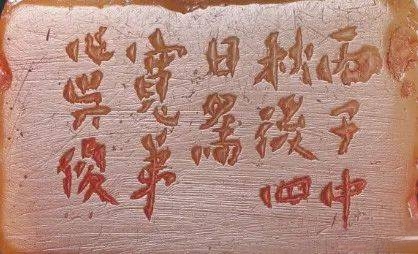 丙子中
秋後四
日爲
寬弟
作吳俊